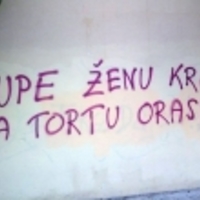 UPE ŽENU KR
A TORTU ORAS